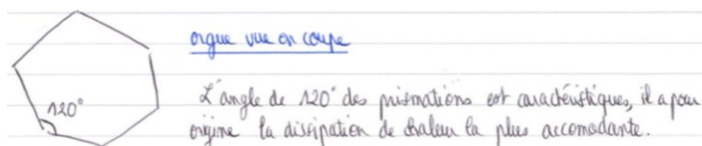 orgue vue en coupe
120°
L'angle de 120° des prismations est caractéristiques, il a pour
origine la dissipation de chaleur la plus accomodante.